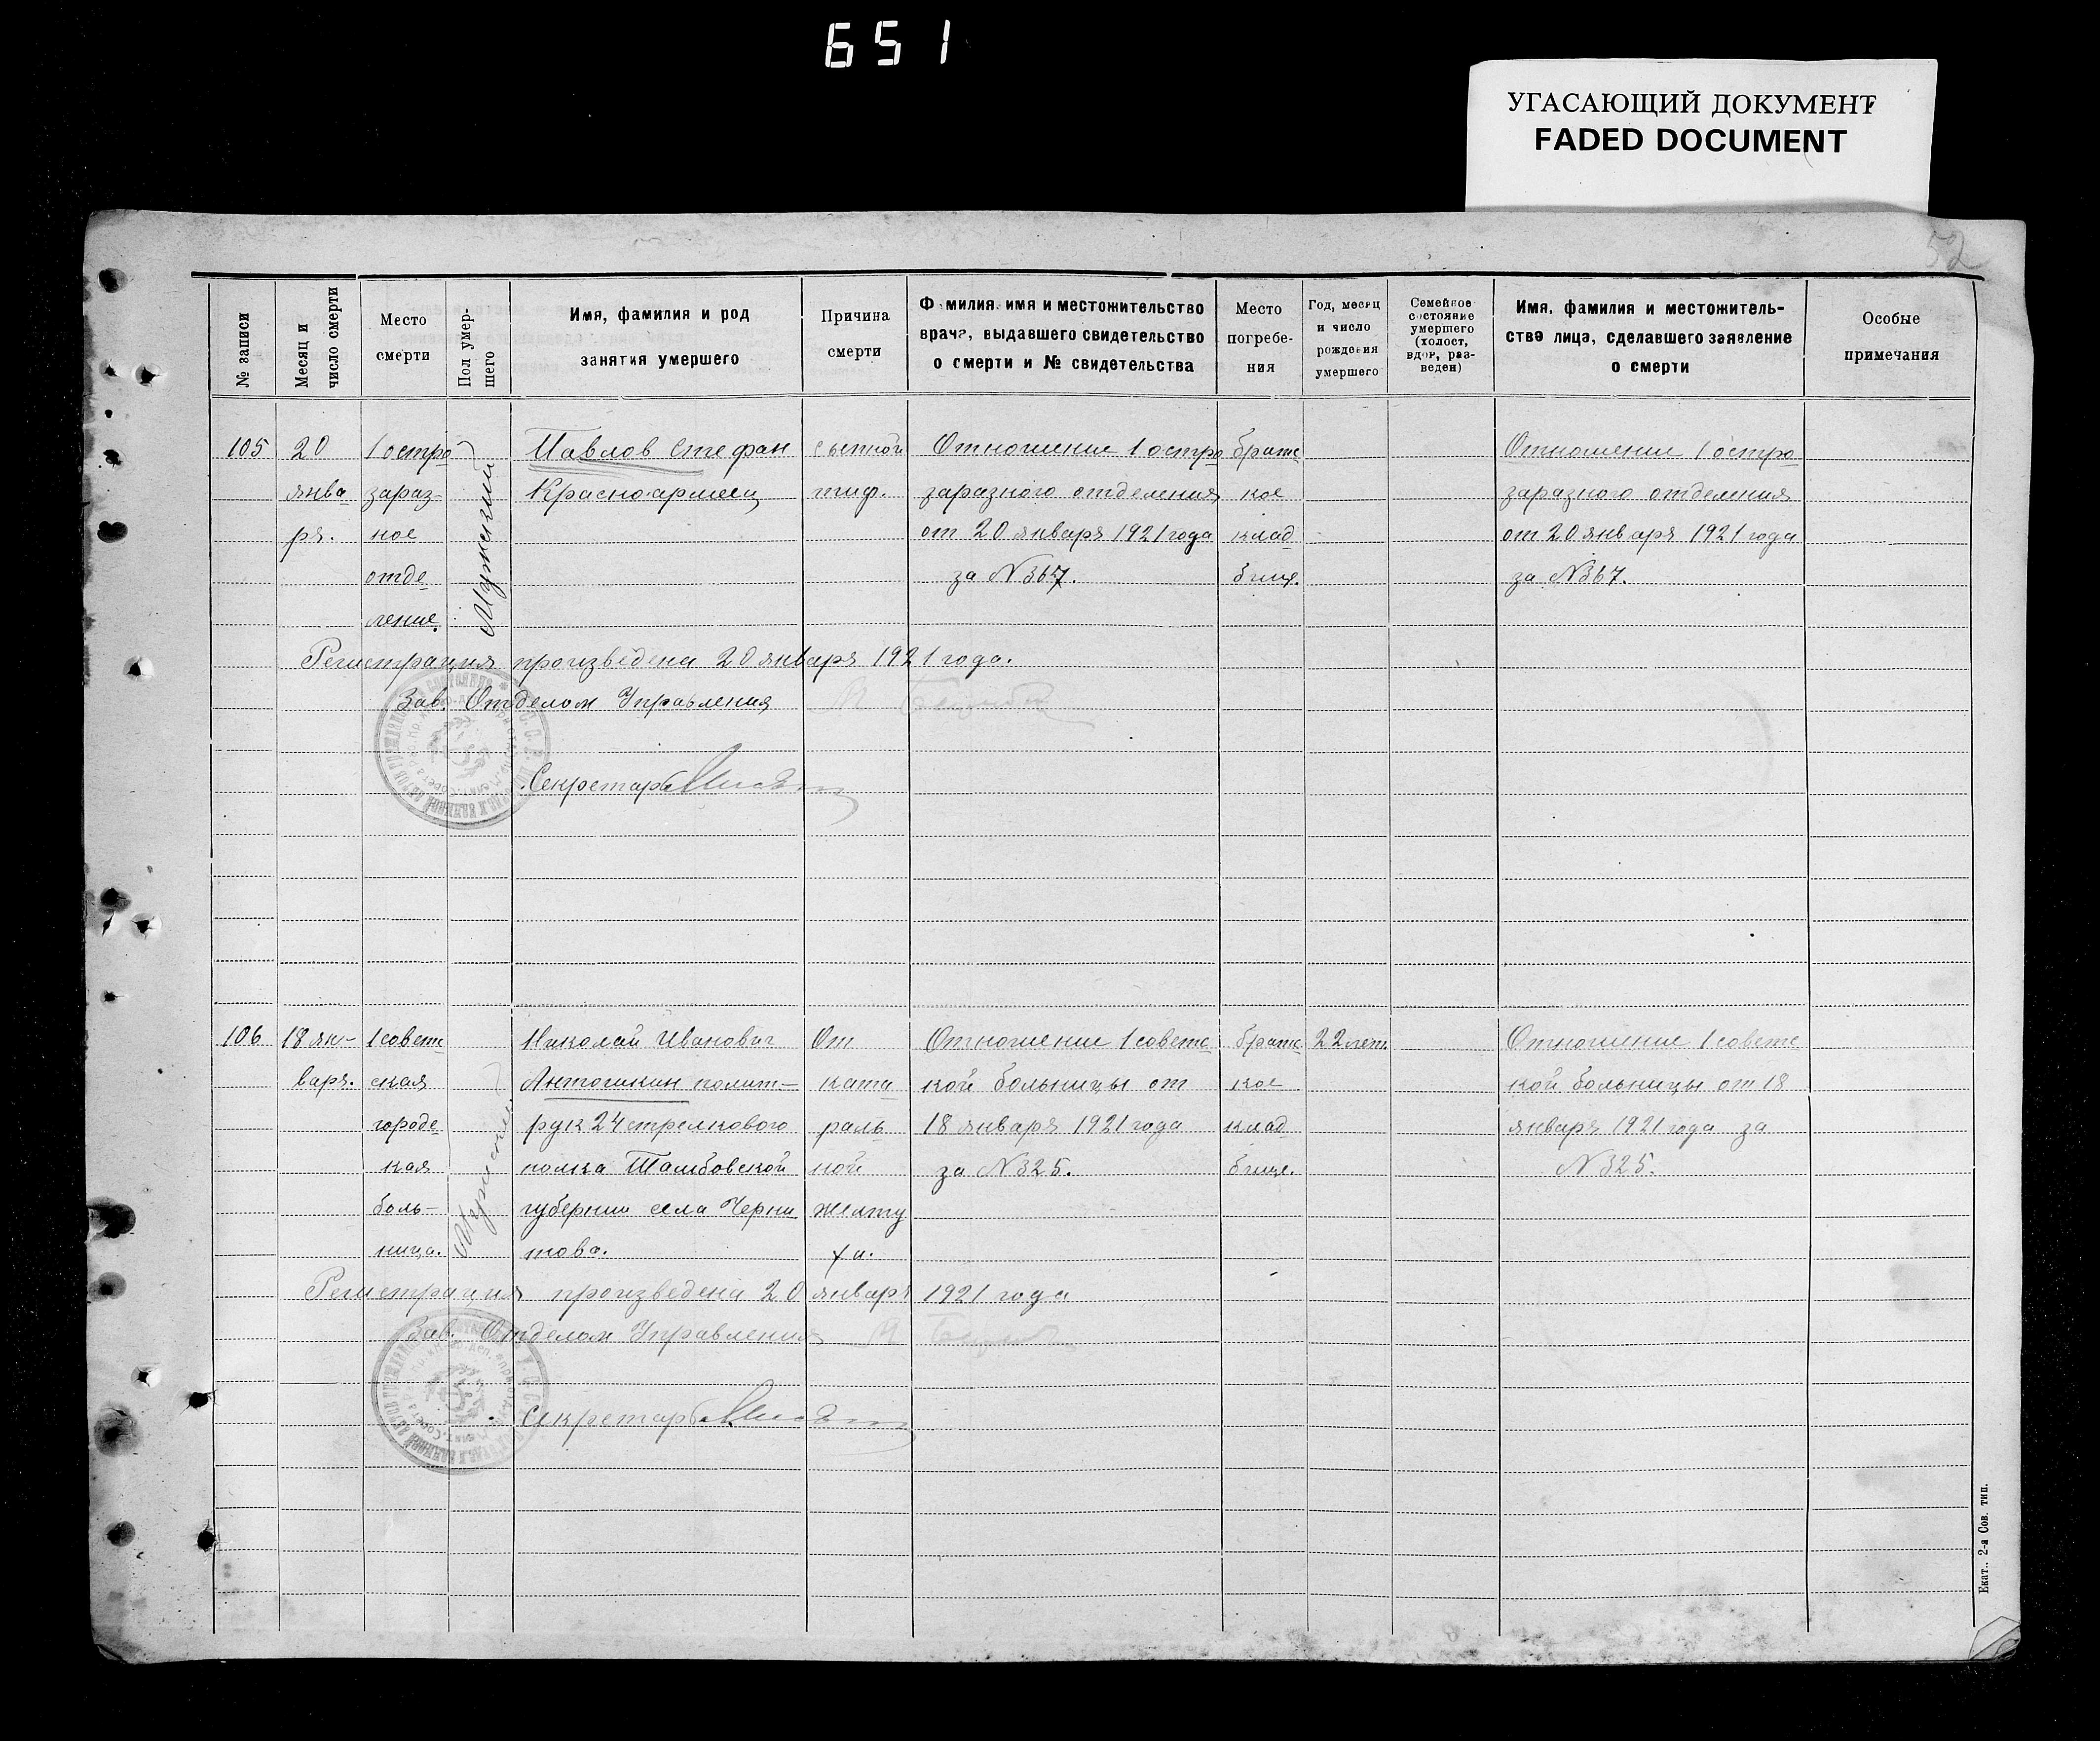 651
УГАСАЮЩИЙ ДОКУМЕНТ
FADED DOCUMENT
52
№ записи
Месяц и
число смерти
Место
смерти
Пол умер-
шего
Имя, фамилия и род
занятия умершего
Причина
смерти
Фамилия, имя и местожительство
врача, выдавшего свидетельство
о смерти и № свидетельства
Место
погребе-
ния
Год, месяц
и число
рождения
умершего
Семейное
состояние
умершего
(холост,
вдов, раз-
веден)
Имя, фамилия и местожитель-
ства лица, сделавшего заявление
о смерти
Особые
примечания
105
20
янва
ря.
1 остро
зараз-
ное
отде
ление.
Мужской
Павлов Стефан
Красноармеец
сыпной
тиф.
Отношение 1 остро
заразного отделения
от 20 января 1921 года
за № 367.
братс
кое
клад
бище.
Отношение 1 остро
заразного отделения
от 20 января 1921 года
за № 367.
Регистрация произведена 20 января 1921 года.
Зав. Отделом Управления
Секретарь
106
18 ян-
варя.
1 советс
ская
городс
кая
боль-
ница.
Мужской
Николай Иванович
Антошкин полит-
рук 24 стрелкового
полка Тамбовской
губернии села Черни
това.
От
ката
раль
ной
желту
хи.
Отношение 1 советс
кой больницы от
18 января 1921 года
за № 325.
братс
кое
клад
бище.
22 лет
Отношение 1 советс
кой больницы от 18
января 1921 года за
№ 325.
Регистрация произведена 20 января 1921 года
Зав. Отделом Управления
Секретарь
Екат. 2-я Сов. тип.